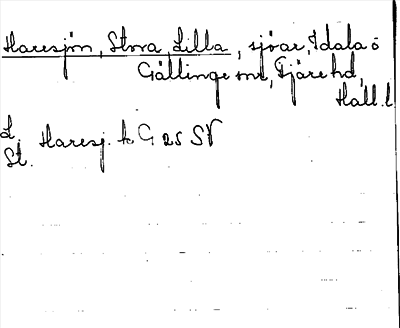 Haresjön, Stora, Lilla, sjöar, Idala o
Gällinge snr, Fjäre hd,
Hall. l.
L.
St. Haresj. tk G 25 SV